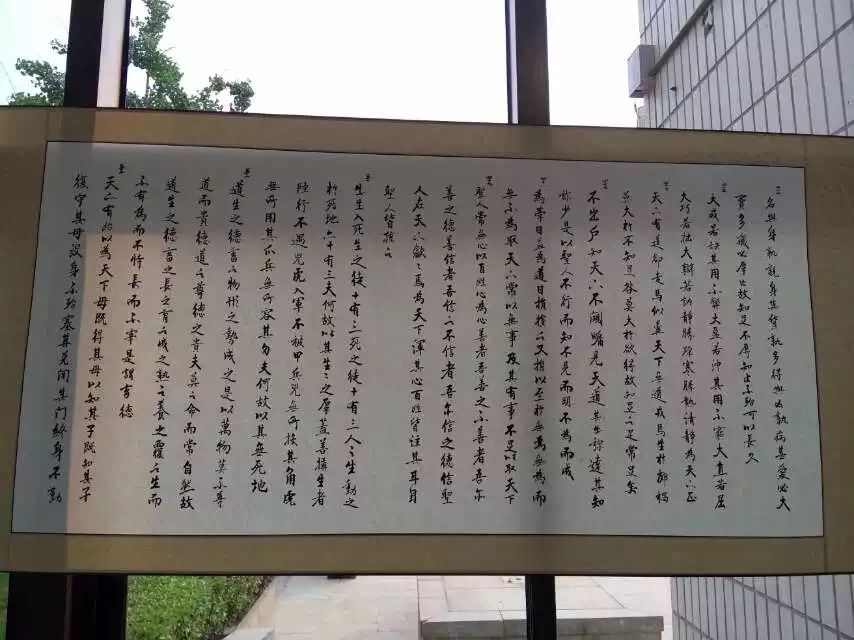 名與身孰親身與貨孰多得與亡孰病甚愛必大
費多藏必厚亡故知足不辱知止不殆可以長久
大成若缺其用不弊大盈若沖其用不窮大直若屈
大巧若拙大辯若訥靜勝躁寒勝熱清靜為天下正
天下有道卻走馬以糞天下無道戎馬生於郊禍
莫大於不知足咎莫大於欲得故知足之足常足矣
不出戶知天下不闚牖見天道其出彌遠其知
彌少是以聖人不行而知不見而明不為而成
為學日益為道日損損之又損以至於無為無為而
無不為取天下常以無事及其有事不足以取天下
聖人常無心以百姓心為心善者吾善之不善者吾亦
善之德善信者吾信之不信者吾亦信之德信聖
人在天下歙歙焉為天下渾其心百姓皆注其耳目
聖人皆孩之
出生入死生之徒十有三死之徒十有三人之生動之
於死地亦十有三夫何故以其生生之厚蓋善攝生者
陸行不遇兕虎入軍不被甲兵兕無所投其角虎
無所用其爪兵無所容其刃夫何故以其無死地
道生之德畜之物形之勢成之是以萬物莫不尊
道而貴德道之尊德之貴夫莫之命而常自然故
道生之德畜之長之育之成之熟之養之覆之生而
不有為而不恃長而不宰是謂玄德
天下有始以為天下母既得其母以知其子既知其子
復守其母沒身不殆塞其兌閉其門終身不勤